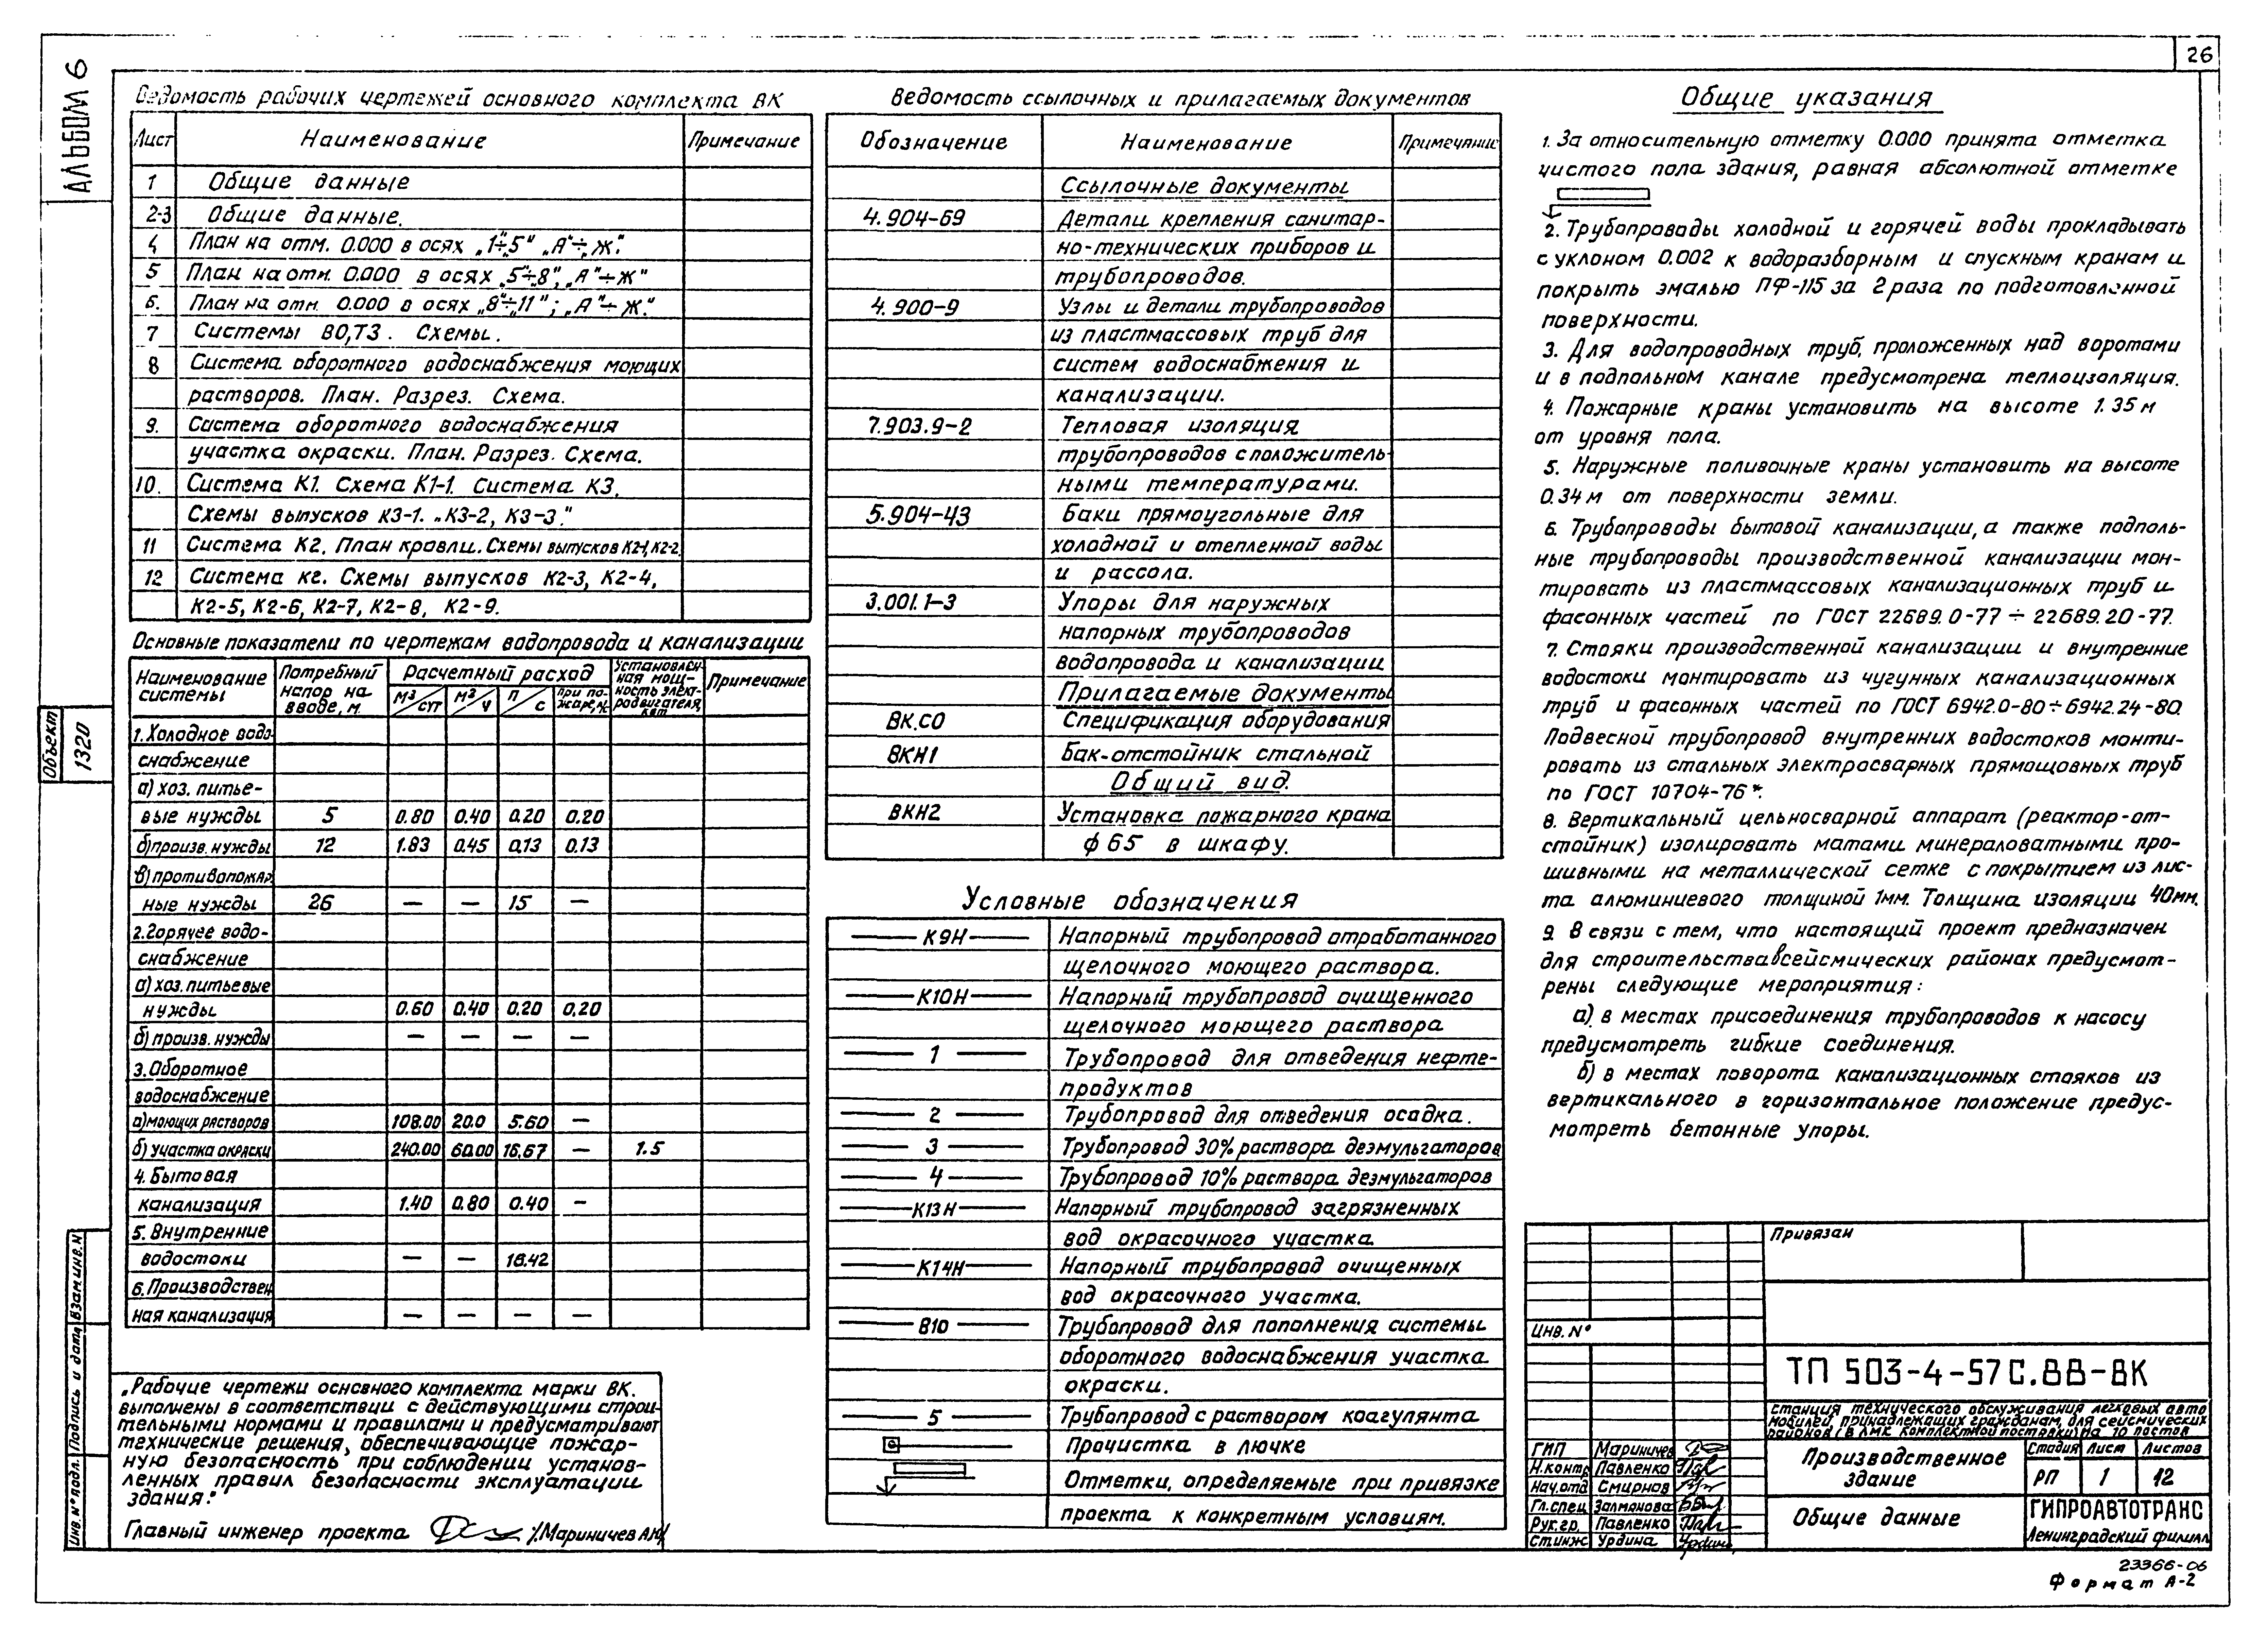 26
АЛЬБОМ 6
Ведомость рабочих чертежей основного комплекта ВК
Лист Наименование Примечание
1 Общие данные
2-3 Общие данные.
4 План на отм. 0.000 в осях „1÷5" „А"÷„Ж".
5 План на отм. 0.000 в осях „5"÷„8", „А"÷„Ж"
6. План на отм. 0.000 в осях „8"÷„11"; „А"÷„Ж".
7 Системы В0,Т3. Схемы.
8 Система оборотного водоснабжения моющих
растворов. План. Разрез. Схема.
9. Система оборотного водоснабжения
участка окраски. План. Разрез. Схема.
10. Система К1. Схема К1-1. Система К3.
Схемы выпусков К3-1. „К3-2, К3-3."
11 Система К2. План кровли. Схемы выпусков К2-1, К2-2.
12 Система К2. Схемы выпусков К2-3, К2-4,
К2-5, К2-6, К2-7, К2-8, К2-9.
Основные показатели по чертежам водопровода и канализации
Наименование системы Потребный напор на вводе, м. Расчетный расход Установленная мощность электродвигателя, квт Примечание
м3/сут м3/ч л/с при пожаре, л/с
1. Холодное водо-
снабжение
а) хоз. питье-
вые нужды 5 0.80 0.40 0.20 0.20
б) произв. нужды 12 1.83 0.45 0.13 0.13
в) противопожар
ные нужды 26 — — 15 —
2. Горячее водо-
снабжение
а) хоз. питьевые
нужды 0.60 0.40 0.20 0.20
б) произв. нужды — — — —
3. Оборотное
водоснабжение
а) моющих растворов 108.00 20.0 5.60 —
б) участка окраски 240.00 60.00 16.67 — 1.5
4. Бытовая
канализация 1.40 0.80 0.40 —
5. Внутренние
водостоки — — 18.42
6. Производствен
ная канализация — — — —
„Рабочие чертежи основного комплекта марки ВК.
выполнены в соответствии с действующими строи-
тельными нормами и правилами и предусматривают
технические решения, обеспечивающие пожар-
ную безопасность при соблюдении установ-
ленных правил безопасности эксплуатации
здания."
Главный инженер проекта /Мариничев А.Н/
Ведомость ссылочных и прилагаемых документов
Обозначение Наименование Примечание
Ссылочные документы
4.904-69 Детали крепления санитар-
но-технических приборов и
трубопроводов.
4.900-9 Узлы и детали трубопроводов
из пластмассовых труб для
систем водоснабжения и
канализации.
7.903.9-2 Тепловая изоляция
трубопроводов с положитель-
ными температурами.
5.904-43 Баки прямоугольные для
холодной и отепленной воды
и рассола.
3.001.1-3 Упоры для наружных
напорных трубопроводов
водопровода и канализации
Прилагаемые документы
ВК.СО Спецификация оборудования
ВКН1 Бак-отстойник стальной
Общий вид.
ВКН2 Установка пожарного крана
ф 65 в шкафу.
Условные обозначения
К9Н Напорный трубопровод отработанного
щелочного моющего раствора.
К10Н Напорный трубопровод очищенного
щелочного моющего раствора
1 Трубопровод для отведения нефте-
продуктов
2 Трубопровод для отведения осадка.
3 Трубопровод 30% раствора деэмульгаторов
4 Трубопровод 10% раствора деэмульгаторов
К13Н Напорный трубопровод загрязненных
вод окрасочного участка.
К14Н Напорный трубопровод очищенных
вод окрасочного участка.
В10 Трубопровод для пополнения системы
оборотного водоснабжения участка
окраски.
5 Трубопровод с раствором коагулянта
Прочистка в лючке
Отметки, определяемые при привязке
проекта к конкретным условиям.
Общие указания
1. За относительную отметку 0.000 принята отметка
чистого пола здания, равная абсолютной отметке
2. Трубопроводы холодной и горячей воды прокладывать
с уклоном 0.002 к водоразборным и спускным кранам и
покрыть эмалью ПФ-115 за 2 раза по подготовленной
поверхности.
3. Для водопроводных труб, проложенных над воротами
и в подпольном канале предусмотрена теплоизоляция.
4. Пожарные краны установить на высоте 1.35 м
от уровня пола.
5. Наружные поливочные краны установить на высоте
0.34 м от поверхности земли.
6. Трубопроводы бытовой канализации, а также подполь-
ные трубопроводы производственной канализации мон-
тировать из пластмассовых канализационных труб и
фасонных частей по ГОСТ 22689.0-77 ÷ 22689.20-77.
7. Стояки производственной канализации и внутренние
водостоки монтировать из чугунных канализационных
труб и фасонных частей по ГОСТ 6942.0-80÷6942.24-80.
Подвесной трубопровод внутренних водостоков монти-
ровать из стальных электросварных прямошовных труб
по ГОСТ 10704-76*.
8. Вертикальный цельносварной аппарат (реактор-от-
стойник) изолировать матами минераловатными про-
шивными на металлической сетке с покрытием из лис-
та алюминиевого толщиной 1мм. Толщина изоляции 40мм.
9. В связи с тем, что настоящий проект предназначен
для строительства в сейсмических районах предусмот-
рены следующие мероприятия:
а) в местах присоединения трубопроводов к насосу
предусмотреть гибкие соединения.
б) в местах поворота канализационных стояков из
вертикального в горизонтальное положение предус-
мотреть бетонные упоры.
Привязан
Инв. №
ТП 503-4-57С.88-ВК
станция технического обслуживания легковых авто
мобилей, принадлежащих гражданам, для сейсмических
районов (в ЛМК комплектной поставки) на 10 постов
ГИП Мариничев
Н.контр Павленко
Нач.отд Смирнов
Гл.спец Залманова
Рук.гр. Павленко
Ст.инж Урдина
Производственное
здание
Стадия Лист Листов
РП 1 12
Общие данные
ГИПРОАВТОТРАНС
Ленинградский филиал
23366-06
Формат А-2
Объект 1320
Взам.инв.№
Подпись и дата
Инв.№ подл.